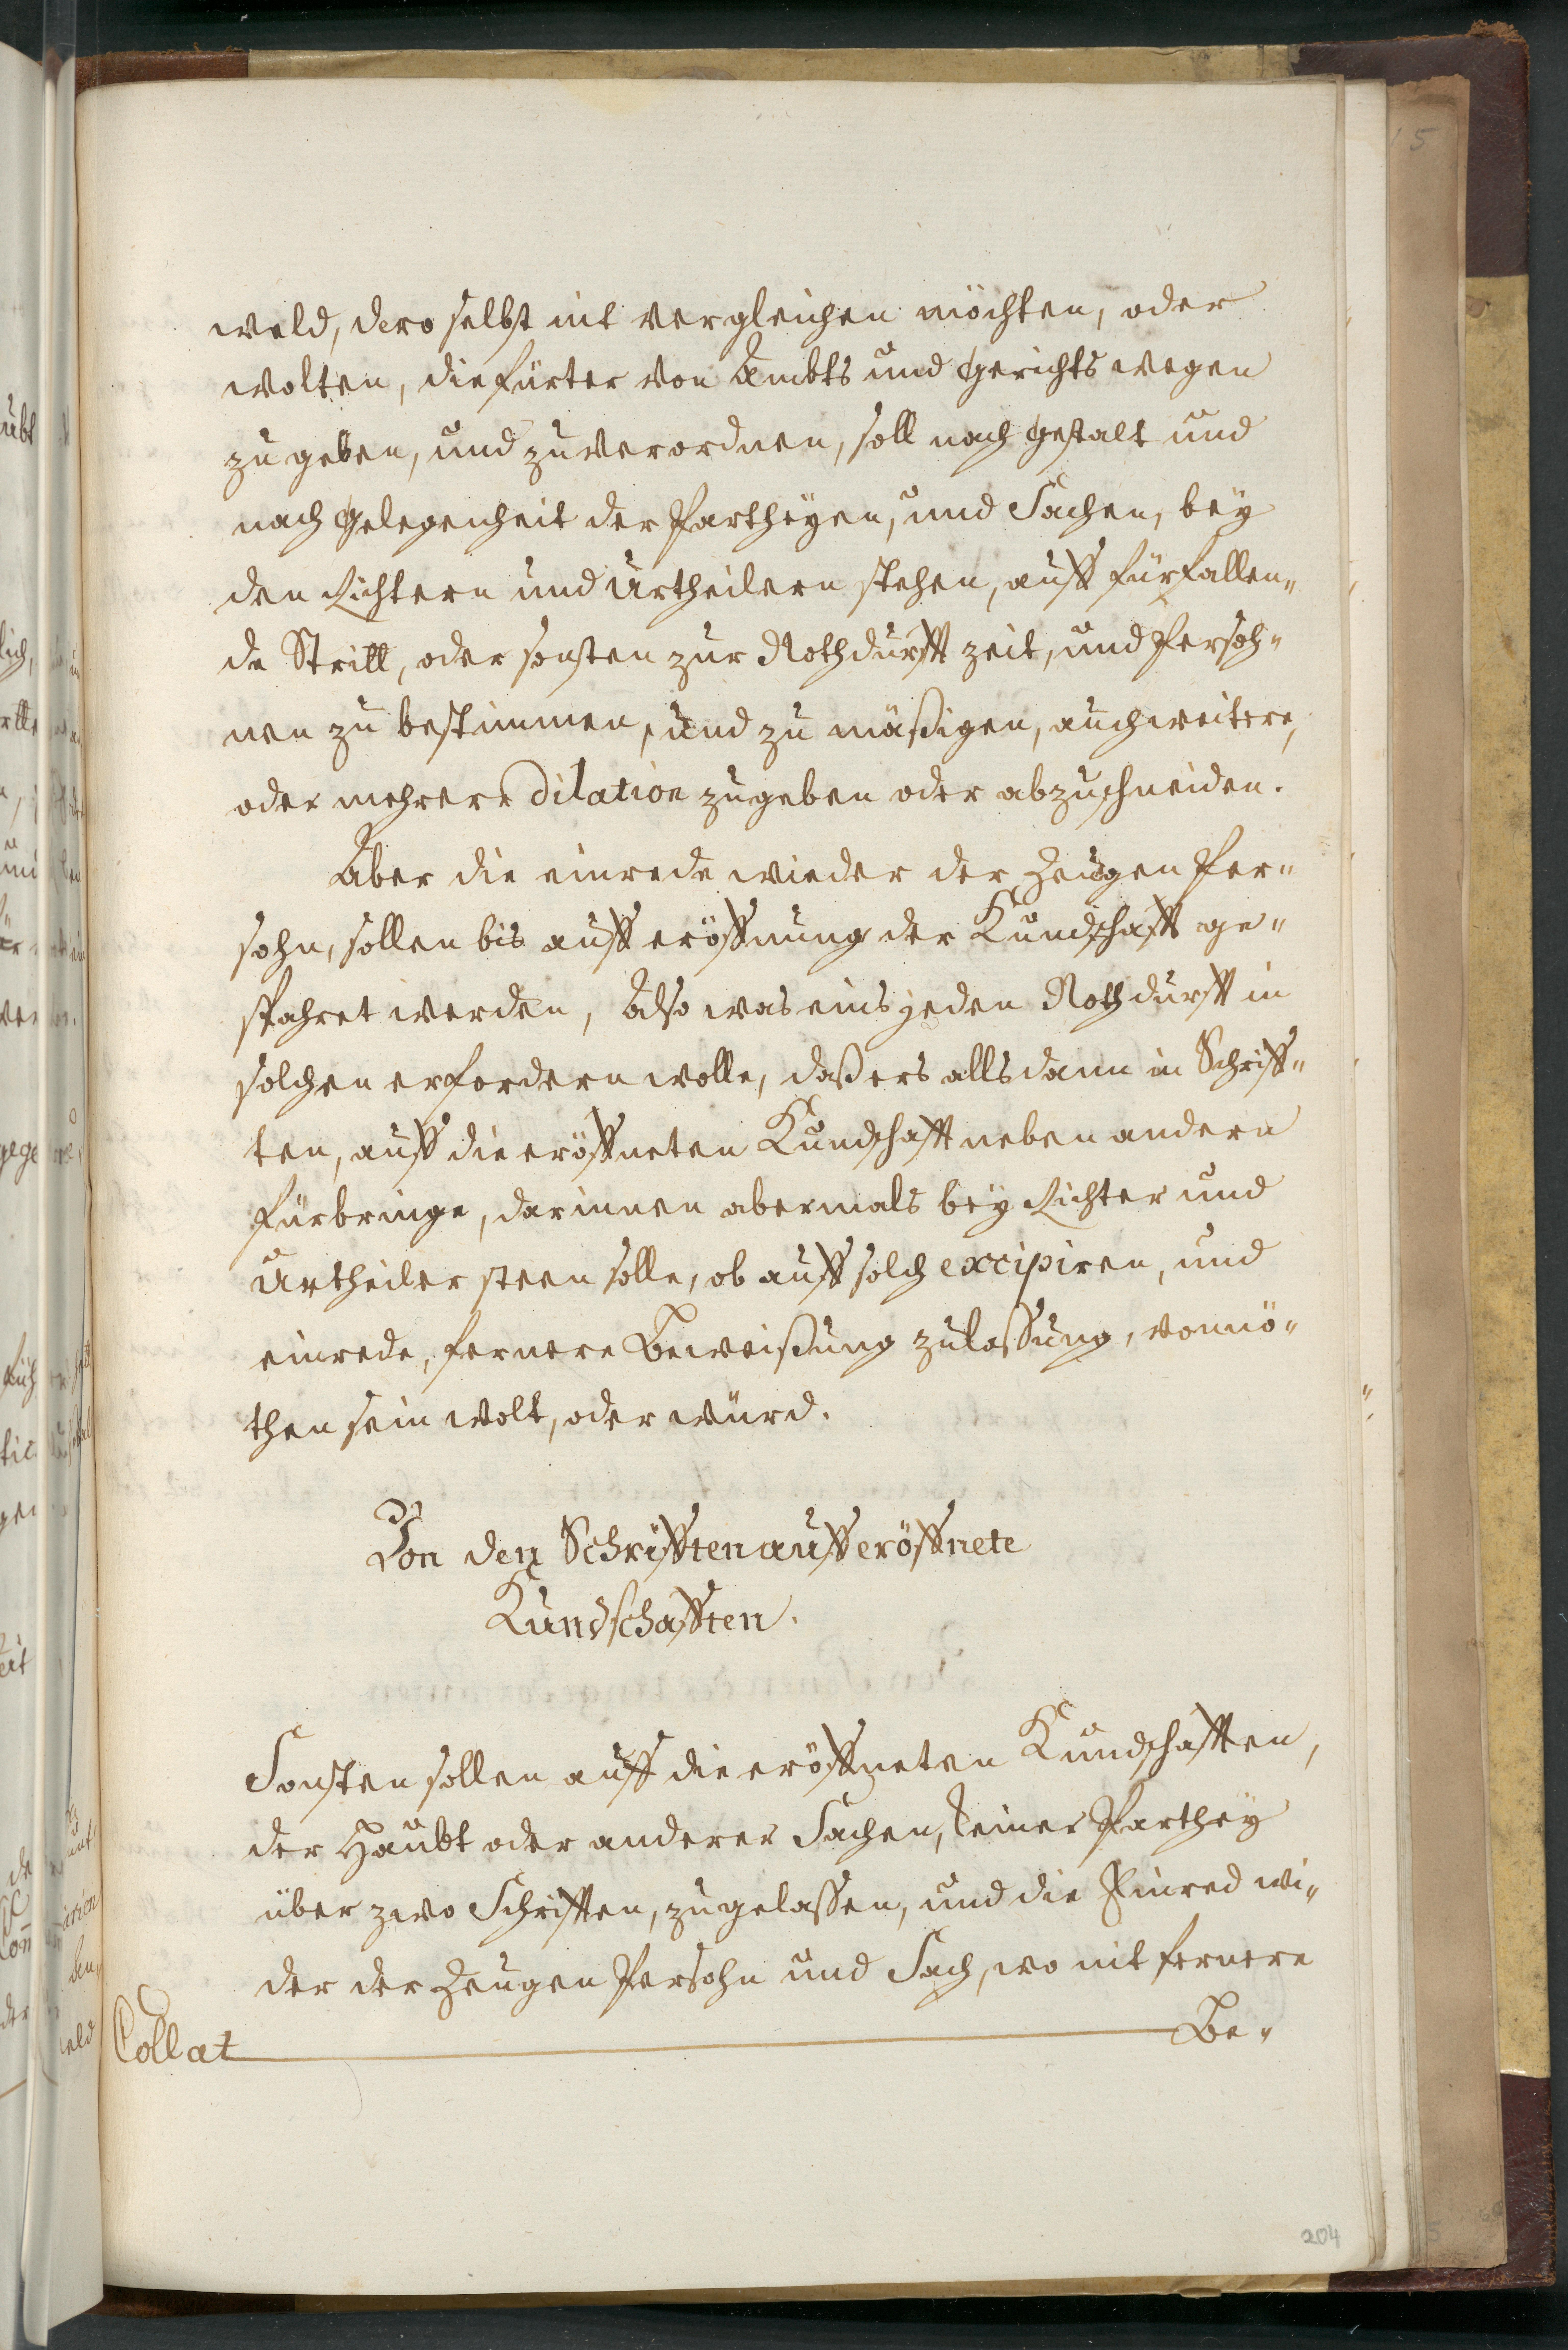 weld, dero selbst nit vergleichen möchten, oder
wolten, die fürter von Ambts und Gerichts wegen
zu geben, und zu verordnen, soll nach gestalt und
nach gelegenheit der Partheyen, und Sachen, bey
den Richtern und Urtheilern stehen, auff fürfallen„
de Stritt, oder sonsten zur Nothdurfft zeit, und Persoh„
nen zu bestimmen, und zu mäßigen, auch weitere,
oder mehrere Dilation zugeben oder abzuschneiden.
Aber die einrede wieder der Zeugen Per„
sohn, sollen bis auff eröffnung der Kundschafft ge„
spahret werden, Also was eins jeden Nothdurfft in
solchen erfordern wolle, daß ers allsdann in Schriff„
ten, auff die eröffneten Kundschafft neben andern
fürbringe, darinnen abermals bey Richter und
Urtheiler steen solle, ob auff solch excipiren, und
einrede, fernere Beweißung zulaßung, vonnö„
then sein wolt, oder würd.
Von den Schrifften auff eröffnete
Kundschafften.
Sonsten sollen auff die eröffneten Kundschafften,
der Haubt oder anderer Sachen, keiner Parthey
über zwo Schrifften, zugelaßen, und die Einred wi„
der der Zeugen Persohn und Sach, wo nit fernere
Be„
Collat
204